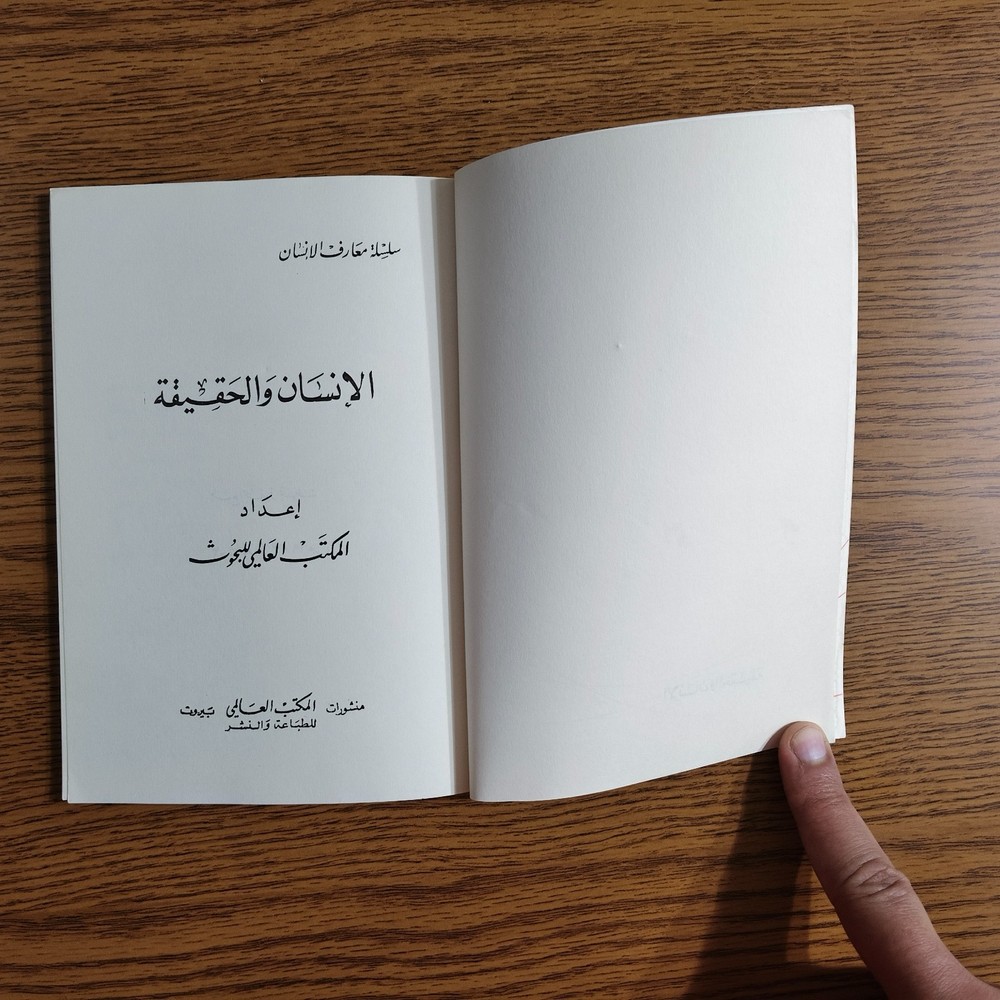 سلسلة معارف الانسان
الإنسَان وَالحَقِيقة
إعدَاد
المكتَب العَالمي للبحُوث
منشورات المكتب العَالمي بَيروت
للطبَاعة وَالنشر